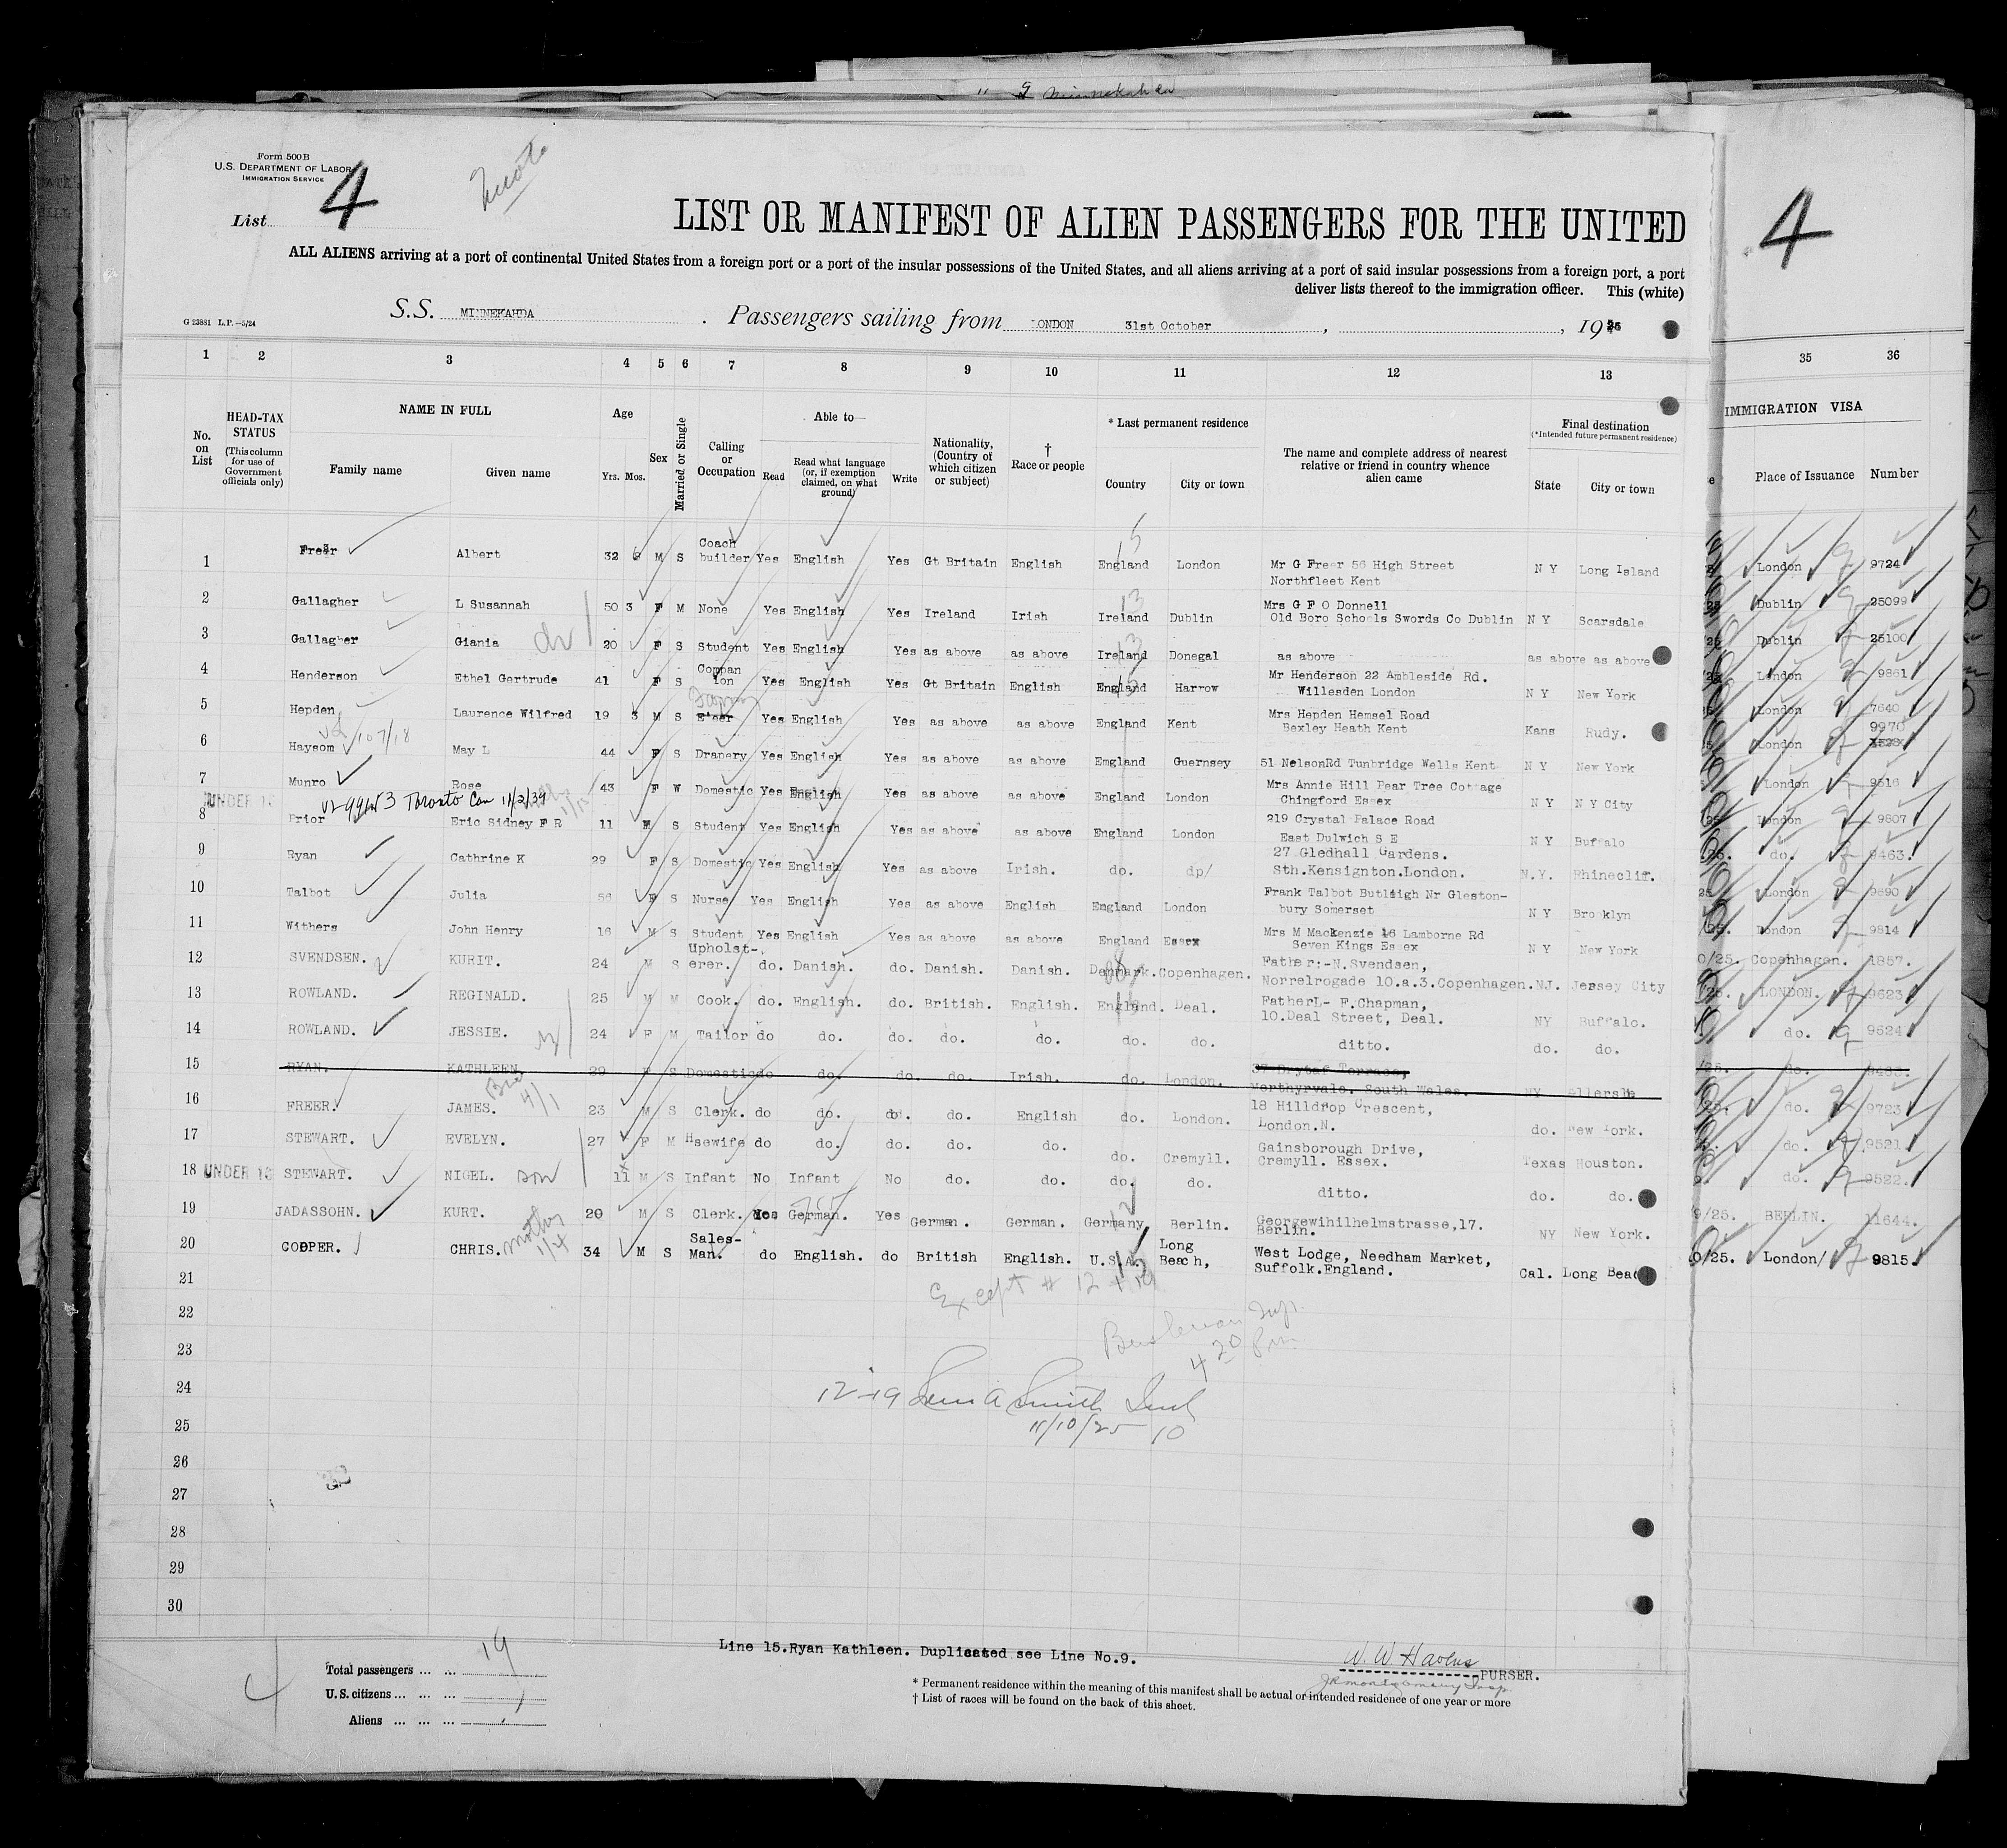 " 9 Minnekahda
Form 500B
U.S. DEPARTMENT OF LABOR
IMMIGRATION SERVICE
List 4
4
LIST OR MANIFEST OF ALIEN PASSENGERS FOR THE UNITED
ALL ALIENS arriving at a port of continental United States from a foreign port or a port of the insular possessions of the United States, and all aliens arriving at a port of said insular possessions from a foreign port, a port
deliver lists thereof to the immigration officer. This (white)
G 23881 L.P.—5/24
S.S. MINNEKAHDA . Passengers sailing from LONDON 31st October , , 1925
1 2 3 4 5 6 7 8 9 10 11 12 13 35 36
No. on List
HEAD-TAX STATUS
(This column for use of Government officials only)
NAME IN FULL
Family name Given name
Age
Yrs. Mos.
Sex
Married or Single
Calling or Occupation
Able to—
Read
Read what language (or, if exemption claimed, on what ground)
Write
Nationality, (Country of which citizen or subject)
† Race or people
* Last permanent residence
Country City or town
The name and complete address of nearest relative or friend in country whence alien came
Final destination
(*Intended future permanent residence)
State City or town
IMMIGRATION VISA
Place of Issuance Number
1 Freer Albert 32 M S Coach builder Yes English Yes Gt Britain English England London Mr G Freer 56 High Street Northfleet Kent N Y Long Island London 9724
2 Gallagher L Susannah 50 3 F M None Yes English Yes Ireland Irish Ireland Dublin Mrs G F O Donnell Old Boro Schools Swords Co Dublin N Y Scarsdale Dublin 25099
3 Gallagher Giania 20 F S Student Yes English Yes as above as above Ireland Donegal as above as above as above Dublin 25100
4 Henderson Ethel Gertrude 41 F S Compan ion Yes English Yes Gt Britain English England Harrow Mr Henderson 22 Ambleside Rd. Willesden London N Y New York London 9861
5 Hepden Laurence Wilfred 19 3 M S Yes English Yes as above as above England Kent Mrs Hepden Hemsel Road Bexley Heath Kent Kans Rudy. London 7640
107/18
6 Haysom May L 44 F S Drapery Yes English Yes as above as above Emgland Guernsey 51 NelsonRd Tunbridge Wells Kent N Y New York London 9970
7 Munro Rose 43 F W Domestic Yes English Yes as above as above England London Mrs Annie Hill Pear Tree Cottage Chingford Essex N Y N Y City London 9516
Toronto Can 11/2/39
8 UNDER 16 Prior Eric Sidney F R 11 M S Student Yes English Yes as above as above England London 219 Crystal Palace Road East Dulwich S E N Y Buffalo London 9807
9 Ryan Cathrine K 29 F S Domestic Yes English Yes as above Irish. do. dp/ 27 Gledhall Gardens. Sth.Kensignton.London. N.Y. Rhineclif. do. 9463.
10 Talbot Julia 56 F S Nurse Yes English Yes as above English England London Frank Talbot Butleigh Nr Gleston- bury Somerset N Y Brooklyn London 9690
11 Withers John Henry 16 M S Student Yes English Yes as above as above England Essex Mrs M Mackenzie 16 Lamborne Rd Seven Kings Essex N Y New York London 9814
12 SVENDSEN. KURIT. 24 M S Upholst- erer. do. Danish. do. Danish. Danish. Denmark. Copenhagen. Father:-N.Svendsen, Norrelrogade 10.a.3.Copenhagen. N.J. Jersey City 0/25. Copenhagen. 1857.
13 ROWLAND. REGINALD. 25 M M Cook. do. English. do. British. English. England. Deal. FatherL- F.Chapman, 10.Deal Street, Deal. NY Buffalo. LONDON. 9623
14 ROWLAND. JESSIE. 24 F M Tailor do do. do. do. do. do. do. ditto. do. do. do. 9624
15 RYAN. KATHLEEN. 29 F S Domestic do do. do. do. Irish. do. London. Merthyrvale. South Wales. NY do.
16 FREER. JAMES. Bro 4/1 23 M S Clerk. do do. do. do. English do. London. 18 Hilldrop Crescent, London.N. do. New York. do. 9723
17 STEWART. EVELYN. 27 F M Hsewife do do. do. do. do. do. Cremyll. Gainsborough Drive, Cremyll. Essex. Texas Houston. do. 9521
18 UNDER 16 STEWART. NIGEL. son 11 M S Infant No Infant No do. do. do. do. ditto. do. do. do. 9522.
19 JADASSOHN. KURT. 20 M S Clerk. Yes German. Yes German. German. Germany Berlin. Georgewihilhelmstrasse,17. Berlin. NY New York. 9/25. BERLIN. 11644.
20 COOPER. CHRIS. mother 1/4 34 M S Sales- Man. do English. do British English. U.S.A. Long Beach, West Lodge, Needham Market, Suffolk.England. Cal. Long Beac 0/25. London/ 9815.
21
Except # 12 + 19
22
Insp.
23
4 20 Pm
24
12-19 Smith Insp
25
11/10/25 10
26
27
28
29
30
Line 15.Ryan Kathleen. Duplicated see Line No.9.
Total passengers ... ... 19
U.S. citizens ... ... ...
Aliens ... ... ...
W. W Havens
PURSER.
J R Montgomery Insp.
* Permanent residence within the meaning of this manifest shall be actual or intended residence of one year or more
† List of races will be found on the back of this sheet.